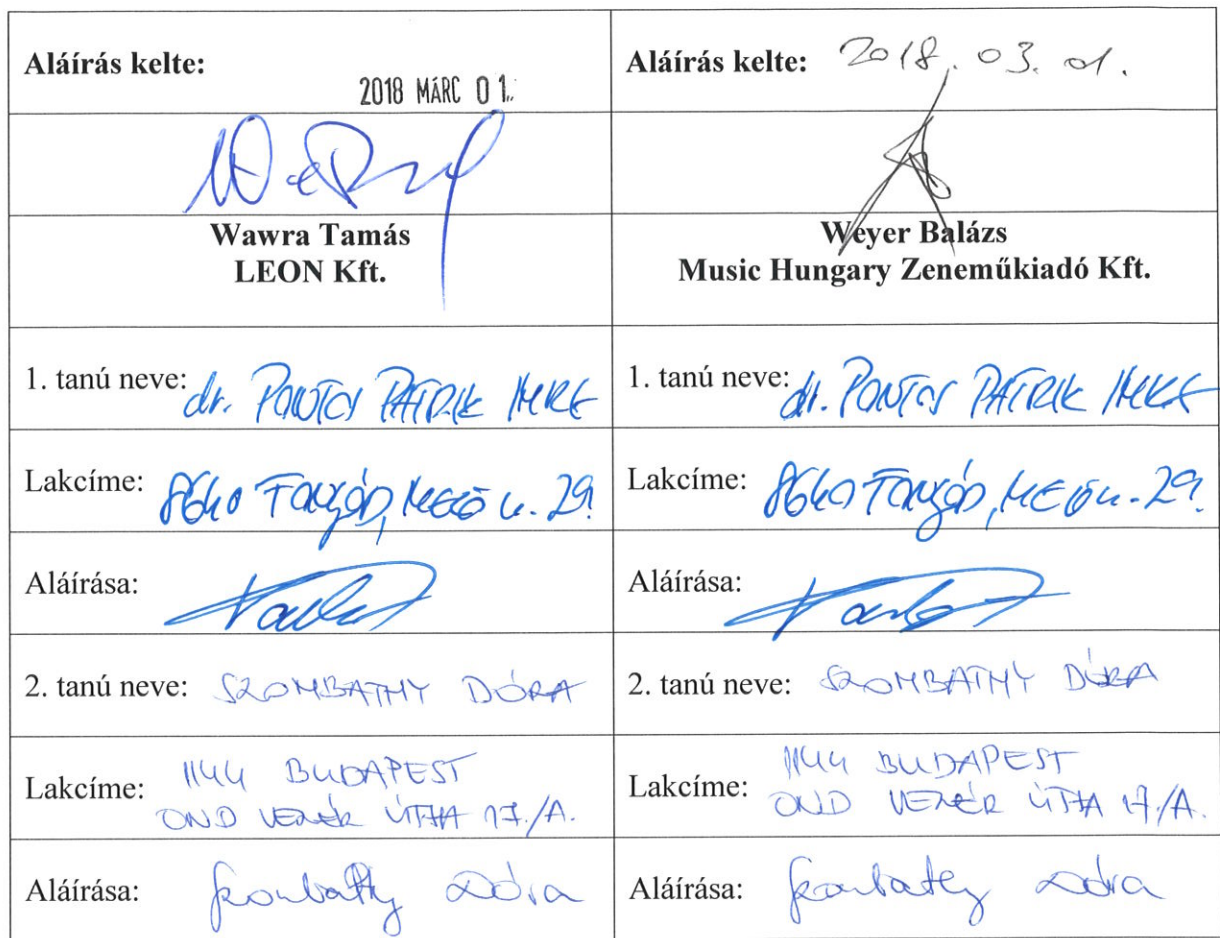 Aláírás kelte:
2018 MÁRC 01.
Aláírás kelte: 2018. 03. 01.
Wawra Tamás
LEON Kft.
Weyer Balázs
Music Hungary Zeneműkiadó Kft.
1. tanú neve: dr. PONTOS PATRIK IMRE
1. tanú neve: dr. PONTOS PATRIK IMRE
Lakcíme: 8640 FONYÓD, u. 29.
Lakcíme: 8640 FONYÓD, u. 29.
Aláírása:
Aláírása:
2. tanú neve: SZOMBATHY DÓRA
2. tanú neve: SZOMBATHY DÓRA
Lakcíme: 1144 BUDAPEST
OND VEZÉR ÚTJA 17./A.
Lakcíme: 1144 BUDAPEST
OND VEZÉR ÚTJA 17./A.
Aláírása: Szombathy Dóra
Aláírása: Szombathy Dóra